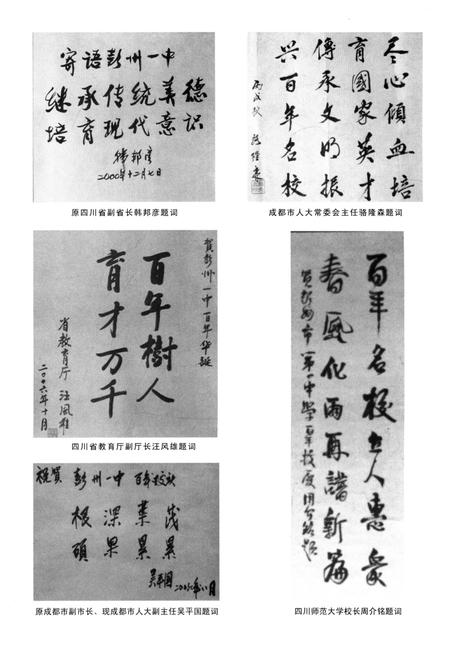 寄语彭州一中
继承传统美德
培育现代意识
韩邦彦
二000年十二月七日
原四川省副省长韩邦彦题词
尽心倾血培
育国家英才
传承文明振
兴百年名校
丙戌秋
成都市人大常委会主任骆隆森题词
贺彭州一中百年华诞
百年樹人
育才万千
省教育厅 汪风雄
二00六年十月
四川省教育厅副厅长汪风雄题词
祝贺彭州一中百年校庆
根深葉茂
硕果累累
吴平国
原成都市副市长、现成都市人大副主任吴平国题词
百年名校士人惠众
春风化雨再谱新篇
四川师范大学校长周介铭题词